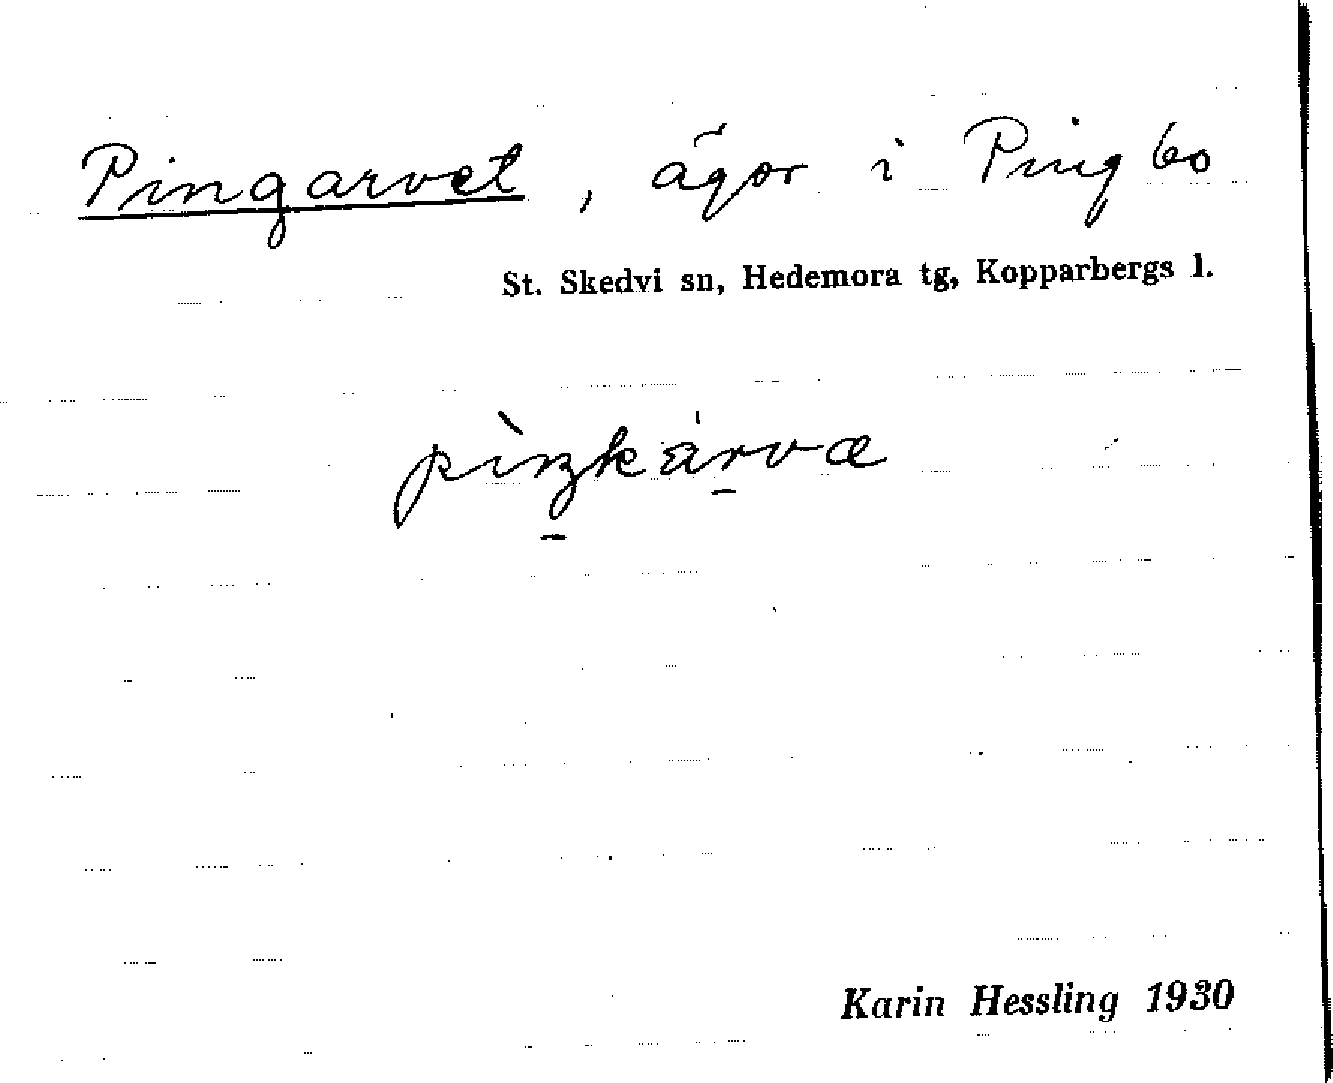 Pingarvet, ägor i Pingbo
St. Skedvi sn, Hedemora tg, Kopparbergs l.
Karin Hessling 1930